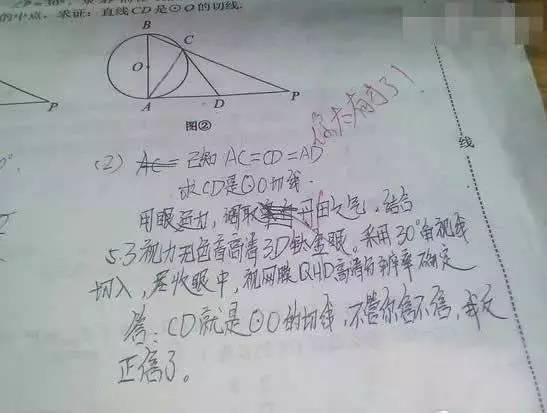 的中点. 求证：直线CD是⊙O的切线.
B
C
O
A
D
P
P
图②
你太有才了！
线
(2) AC= 已知 AC=CD=AD
求CD是⊙O切线.
用眼运力，调取丹田之气，结合
5.3视力无色音高清3D钛金眼。采用30°角视线
切入，尽收眼中，视网膜QHD高清分辨率确定
答：CD就是⊙O的切线，不管你信不信，我反
正信了。